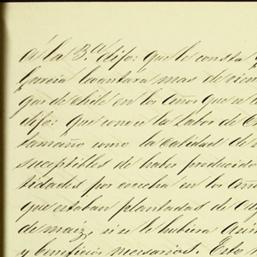 á la 3.ª dijo: que le consta
García levantara mas de cien
gas de chile en los Años que
dijo: que conoce la Labor de
tamaño como la calidad de
suceptibles de haber producido
tidades por cosecha en los
que estaban plantadas de
de maiz, si se le hubiera
y beneficio necesarios. Esto